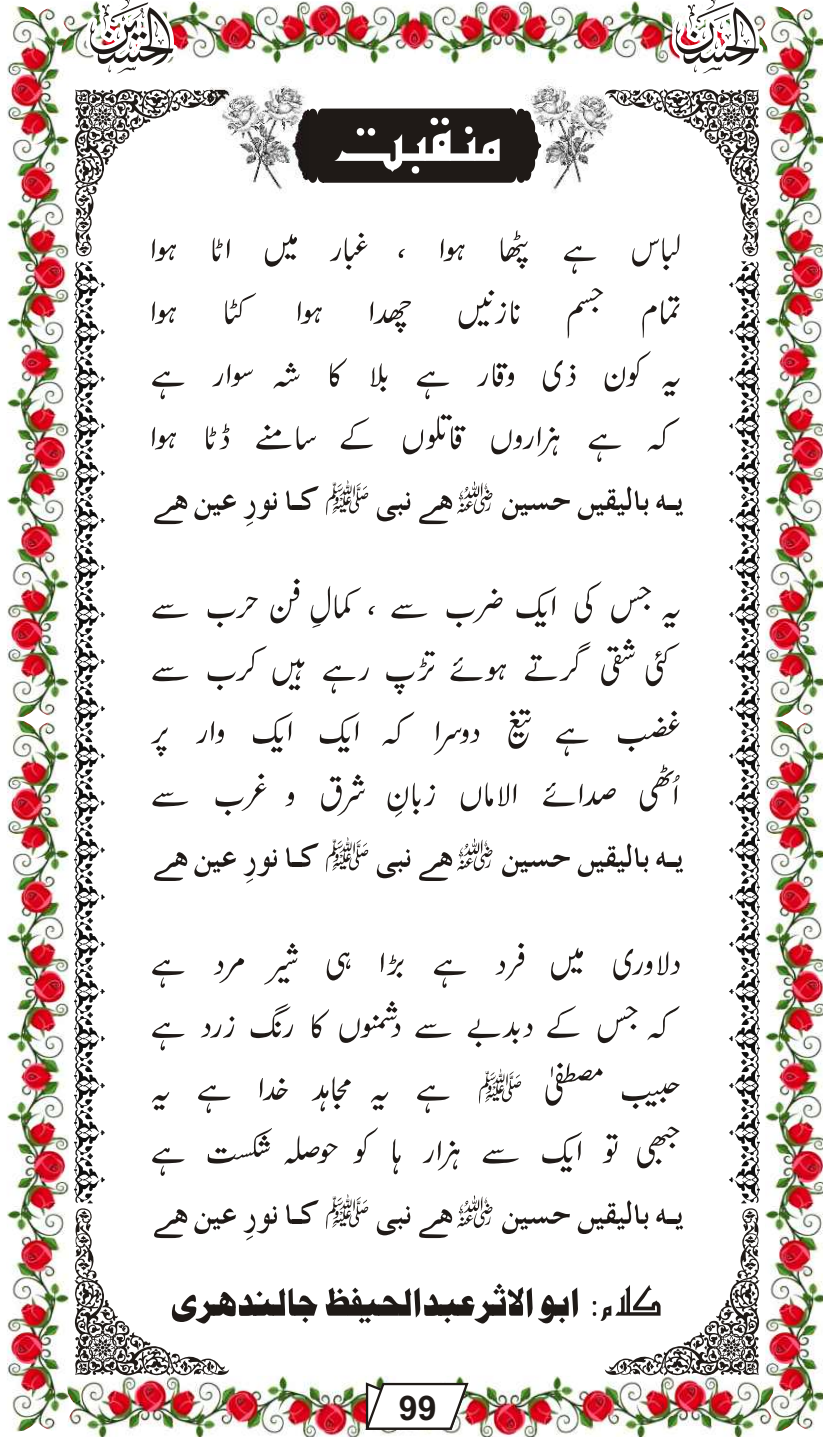 الحسین
الحسین
منقبت
لباس ہے پٹھا ہوا ، غبار میں اٹا ہوا
تمام جسم نازنیں چھدا ہوا کٹا ہوا
یہ کون ذی وقار ہے بلا کا شہ سوار ہے
کہ ہے ہزاروں قاتلوں کے سامنے ڈٹا ہوا
یہ بالیقیں حسین رضی اللہ عنہ ہے نبی ﷺ کا نورِ عین ہے
یہ جس کی ایک ضرب سے ، کمالِ فن حرب سے
کئی شقی گرتے ہوئے تڑپ رہے ہیں کرب سے
غضب ہے تیغ دوسرا کہ ایک ایک وار پر
اُٹھی صدائے الاماں زبانِ شرق و غرب سے
یہ بالیقیں حسین رضی اللہ عنہ ہے نبی ﷺ کا نورِ عین ہے
دلاوری میں فرد ہے بڑا ہی شیر مرد ہے
کہ جس کے دبدبے سے دشمنوں کا رنگ زرد ہے
حبیب مصطفیٰ ﷺ ہے یہ مجاہد خدا ہے یہ
جبھی تو ایک سے ہزار ہا کو حوصلہ شکست ہے
یہ بالیقیں حسین رضی اللہ عنہ ہے نبی ﷺ کا نورِ عین ہے
کلام: ابو الاثر عبدالحیفظ جالندھری
99